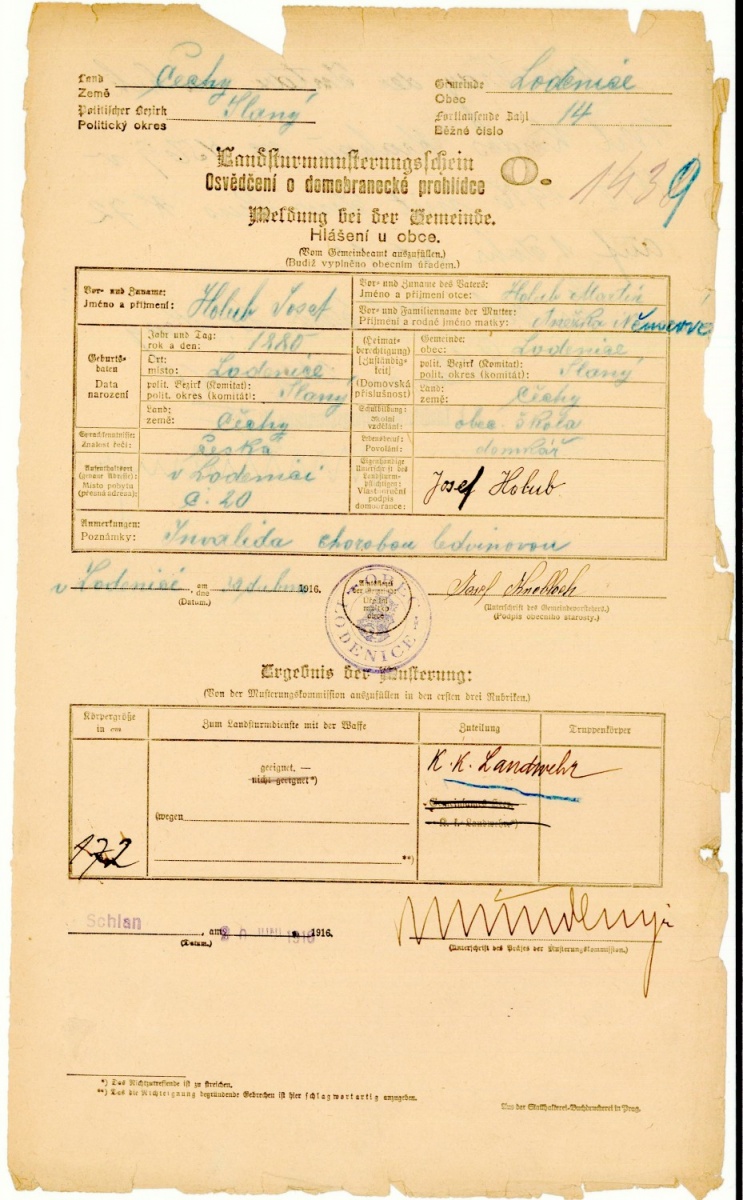 Land
Země
Čechy
Politischer Bezirk
Politický okres
Slaný
Gemeinde
Obec
Lodenice
Fortlaufende Zahl
Běžné číslo
14
Landsturmmusterungsschein
Osvědčení o domobranecké prohlídce
1439
Meldung bei der Gemeinde.
Hlášení u obce.
(Vom Gemeindeamt auszufüllen.)
(Budiž vyplněno obecním úřadem.)
Vor- und Zuname:
Jméno a příjmení:
Holub Josef
Vor- und Zuname des Vaters:
Jméno a příjmení otce:
Holub Martin
Vor- und Familienname der Mutter:
Příjmení a rodné jméno matky:
Anežka Němcové
Geburts-
daten
Data
narození
Jahr und Tag:
rok a den:
1880
Ort:
místo:
Lodenice
polit. Bezirk (Komitat):
polit. okres (komitát):
Slaný
Land:
země:
Čechy
(Heimat-
berechtigung)
[Zuständig-
keit]
(Domovská
příslušnost)
Gemeinde:
obec:
Lodenice
polit. Bezirk (Komitat):
polit. okres (komitát):
Slaný
Land:
země:
Čechy
Schulbildung:
školní
vzdělání:
obec. škola
Sprachkenntnisse:
Znalost řečí:
Česká
Lebensberuf:
Povolání:
domkář
Aufenthaltsort
(genaue Adresse):
Místo pobytu
(přesná adresa):
v Lodenici
č. 20
Eigenhändige
Unterschrift des
Landsturm-
pflichtigen:
Vlastnoruční
podpis
domobrance:
Josef Holub
Anmerkungen:
Poznámky:
Invalida chorobou ledvinovou
v Lodenici, am
dne
dubna 1916.
(Datum.)
OBEC
LODENICE
(Unterschrift des Gemeindevorstehers.)
(Podpis obecního starosty.)
Ergebnis der Musterung:
(Von der Musterungskommission auszufüllen in den ersten drei Rubriken.)
Körpergröße
in cm
Zum Landsturmdienste mit der Waffe
Zuteilung
Truppenkörper
172
geeignet. —
nicht geeignet*)
(wegen
**)
K. K. Landwehr
Schlan, am 1916.
(Datum.)
(Unterschrift des Präses der Musterungskommission.)
*) Das Nichtzutreffende ist zu streichen.
**) Das die Nichteignung begründende Gebrechen ist hier schlagwortartig anzugeben.
Aus der Statthalterei-Buchdruckerei in Prag.